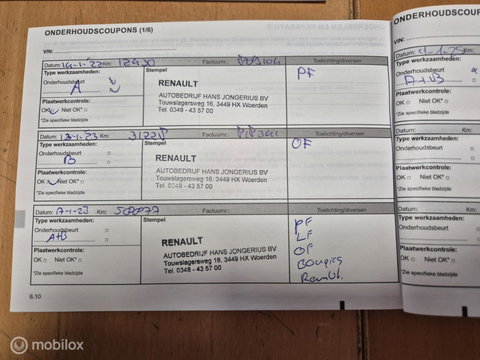 ONDERHOUDSCOUPONS (1/6)
VIN:
Datum: Km: Factuurnr.: Toelichting/diversen
Type werkzaamheden: Stempel PF
Onderhoudsbeurt
A
RENAULT
AUTOBEDRIJF HANS JONGERIUS BV
Touwslagersweg 16, 3449 HX Woerden
Tel. 0348 - 43 57 00
Plaatwerkcontrole:
OK Niet OK*
*Zie specifieke bladzijde
Datum: Km: 31228 Factuurnr.: Toelichting/diversen
Type werkzaamheden: Stempel OF
Onderhoudsbeurt
B
RENAULT
AUTOBEDRIJF HANS JONGERIUS BV
Touwslagersweg 16, 3449 HX Woerden
Tel. 0348 - 43 57 00
Plaatwerkcontrole:
OK Niet OK*
*Zie specifieke bladzijde
Datum: Km: Factuurnr.: Toelichting/diversen
Type werkzaamheden: Stempel
Onderhoudsbeurt
A+B
RENAULT
AUTOBEDRIJF HANS JONGERIUS BV
Touwslagersweg 16, 3449 HX Woerden
Tel. 0348 - 43 57 00
PF
LF
OF
Plaatwerkcontrole:
OK Niet OK*
*Zie specifieke bladzijde
6.10
ONDERHOUDSCOUPONS
VIN:
Datum: Km:
Type werkzaamheden:
Onderhoudsbeurt
A+B
Plaatwerkcontrole:
OK Niet OK*
*Zie specifieke bladzijde
Datum: Km:
Type werkzaamheden:
Onderhoudsbeurt
Plaatwerkcontrole:
OK Niet OK*
*Zie specifieke bladzijde
Datum: Km:
Type werkzaamheden:
Onderhoudsbeurt
Plaatwerkcontrole:
OK Niet OK*
*Zie specifieke bladzijde
mobilox